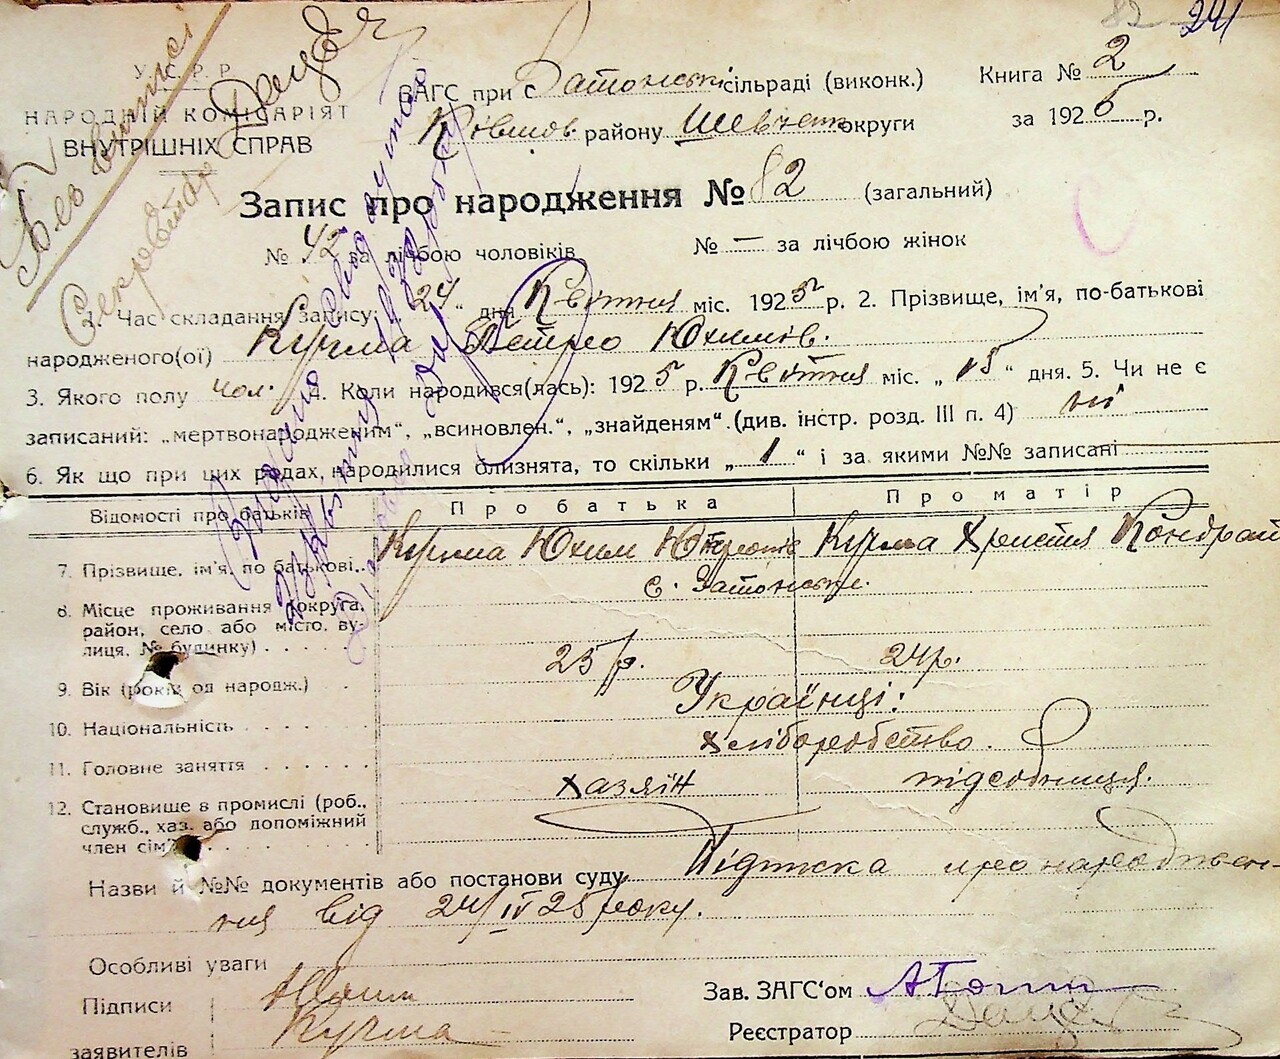 82 241
У. С. Р. Р.
НАРОДНІЙ КОМІСАРІЯТ
ВНУТРІШНІХ СПРАВ
Секретар
ЗАГС при с Затонській сільраді (виконк.)
району Шевченк округи
Книга № 2
за 1925 р.
Запис про народження № 82 (загальний)
№ 42 за лічбою чоловіків № — за лічбою жінок
1. Час складання запису: „24“ дня Квітня міс. 1925 р. 2. Прізвище, ім'я, по-батькові
народженого(ої) Кучма Петро Юхимів.
3. Якого полу чол. 4. Коли народився(лась): 1925 р. Квітня міс. „15“ дня. 5. Чи не є
записаний: „мертвонародженим“, „всиновлен.“, „знайденям“ (див. інстр. розд. III п. 4) ні
6. Як що при цих родах, народилися близнята, то скільки „1“ і за якими №№ записані
Відомості про батьків Про батька Про матір
7. Прізвище, ім'я, по батькові. Кучма Юхим Кучма Христя Кондрат
8. Місце проживання (округа, с. Затонське.
район, село або місто, ву-
лиця, № будинку)
9. Вік (років од народж.) 25 р. 24 р.
10. Національність Українці:
11. Головне заняття хліборобство.
12. Становище в промислі (роб., хазяїн підсобниця.
служб., хаз. або допоміжний
член сім'ї)
Назви й №№ документів або постанови суду. Підписка про народжен-
ня від 24/IV 25 року.
Особливі уваги
Підписи
заявителів
Кучма
Зав. ЗАГС'ом
Реєстратор